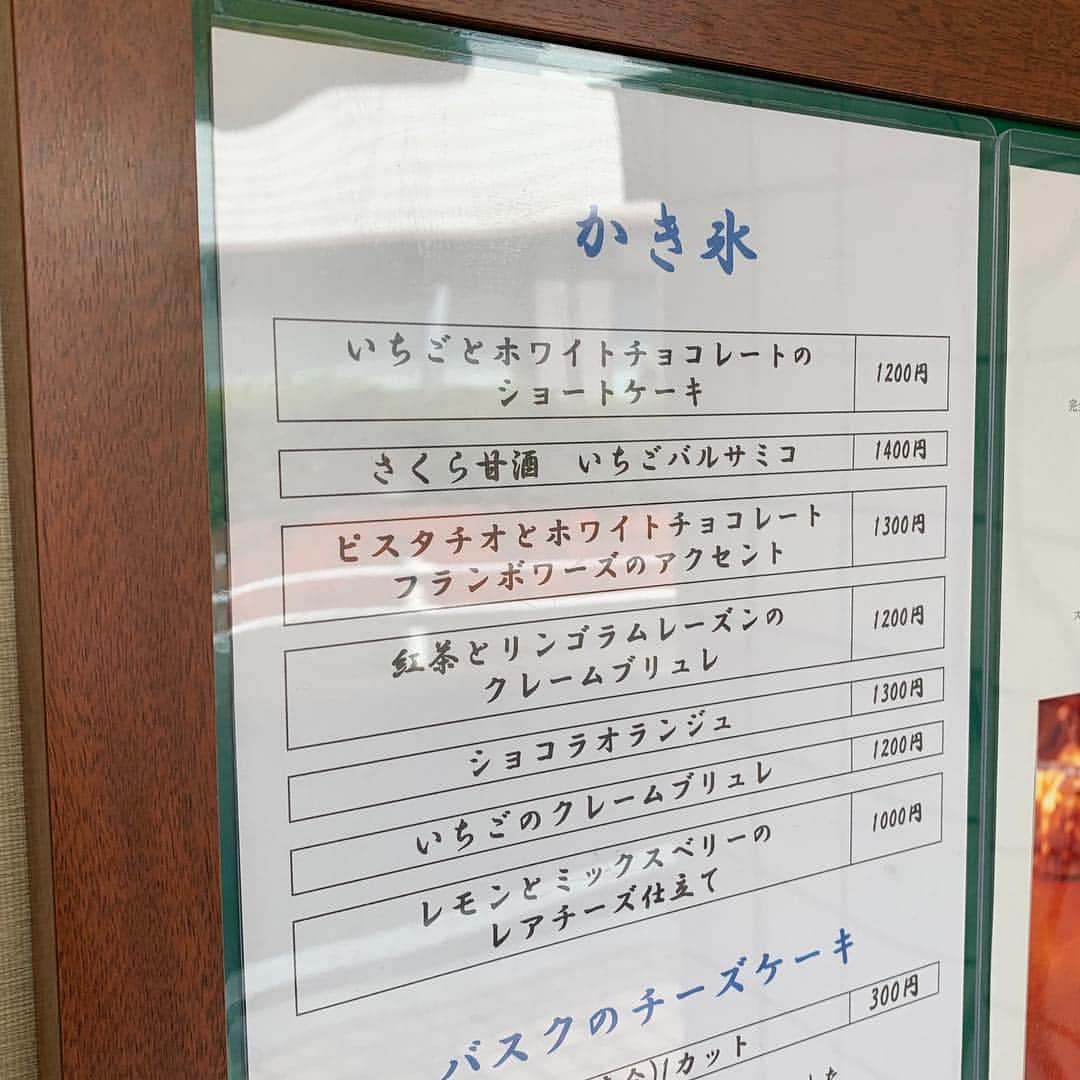 かき氷
いちごとホワイトチョコレートの
ショートケーキ
1200円
さくら甘酒　いちごバルサミコ
1400円
ピスタチオとホワイトチョコレート
フランボワーズのアクセント
1300円
紅茶とリンゴラムレーズンの
クレームブリュレ
1200円
ショコラオランジュ
1300円
いちごのクレームブリュレ
1200円
レモンとミックスベリーの
レアチーズ仕立て
1000円
バスクのチーズケーキ
1カット
300円